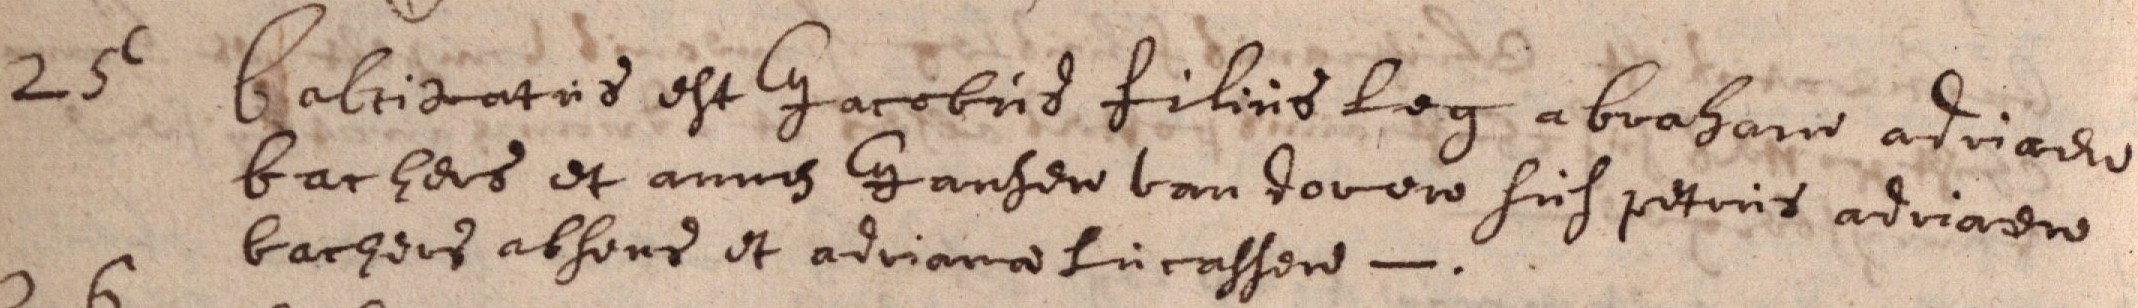 25 baltizatus est Jacobus filius leg abraham adriaen
bachers et anneken Jansen van doren sus petrus adriaen
bachers absens et adriana lucassen —.
26